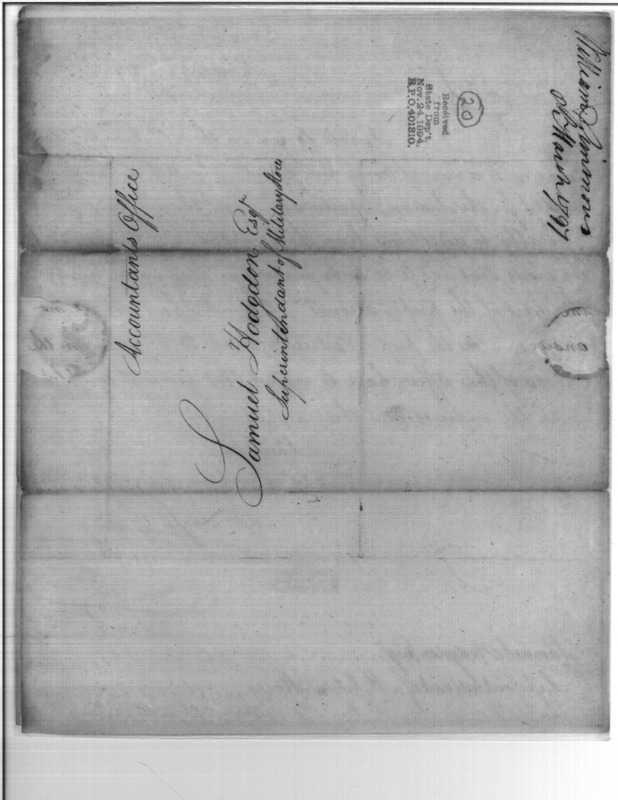 Accountants Office
Samuel Hodgdon Esqr
Superintendant of Military Stores
20
Received
from
State Dep't.
Nov. 24, 1894.
R.P.O. 401810.
William Simmons
March 1797